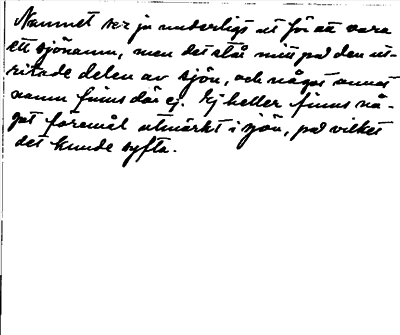 Namnet ser ju underligt ut för att vara
ett sjönamn, men det står mitt på den ut-
ritade delen av sjön, och något annat
namn finns där ej. Ej heller finns nå-
got föremål utmärkt i sjön, på vilket
det kunde syfta.